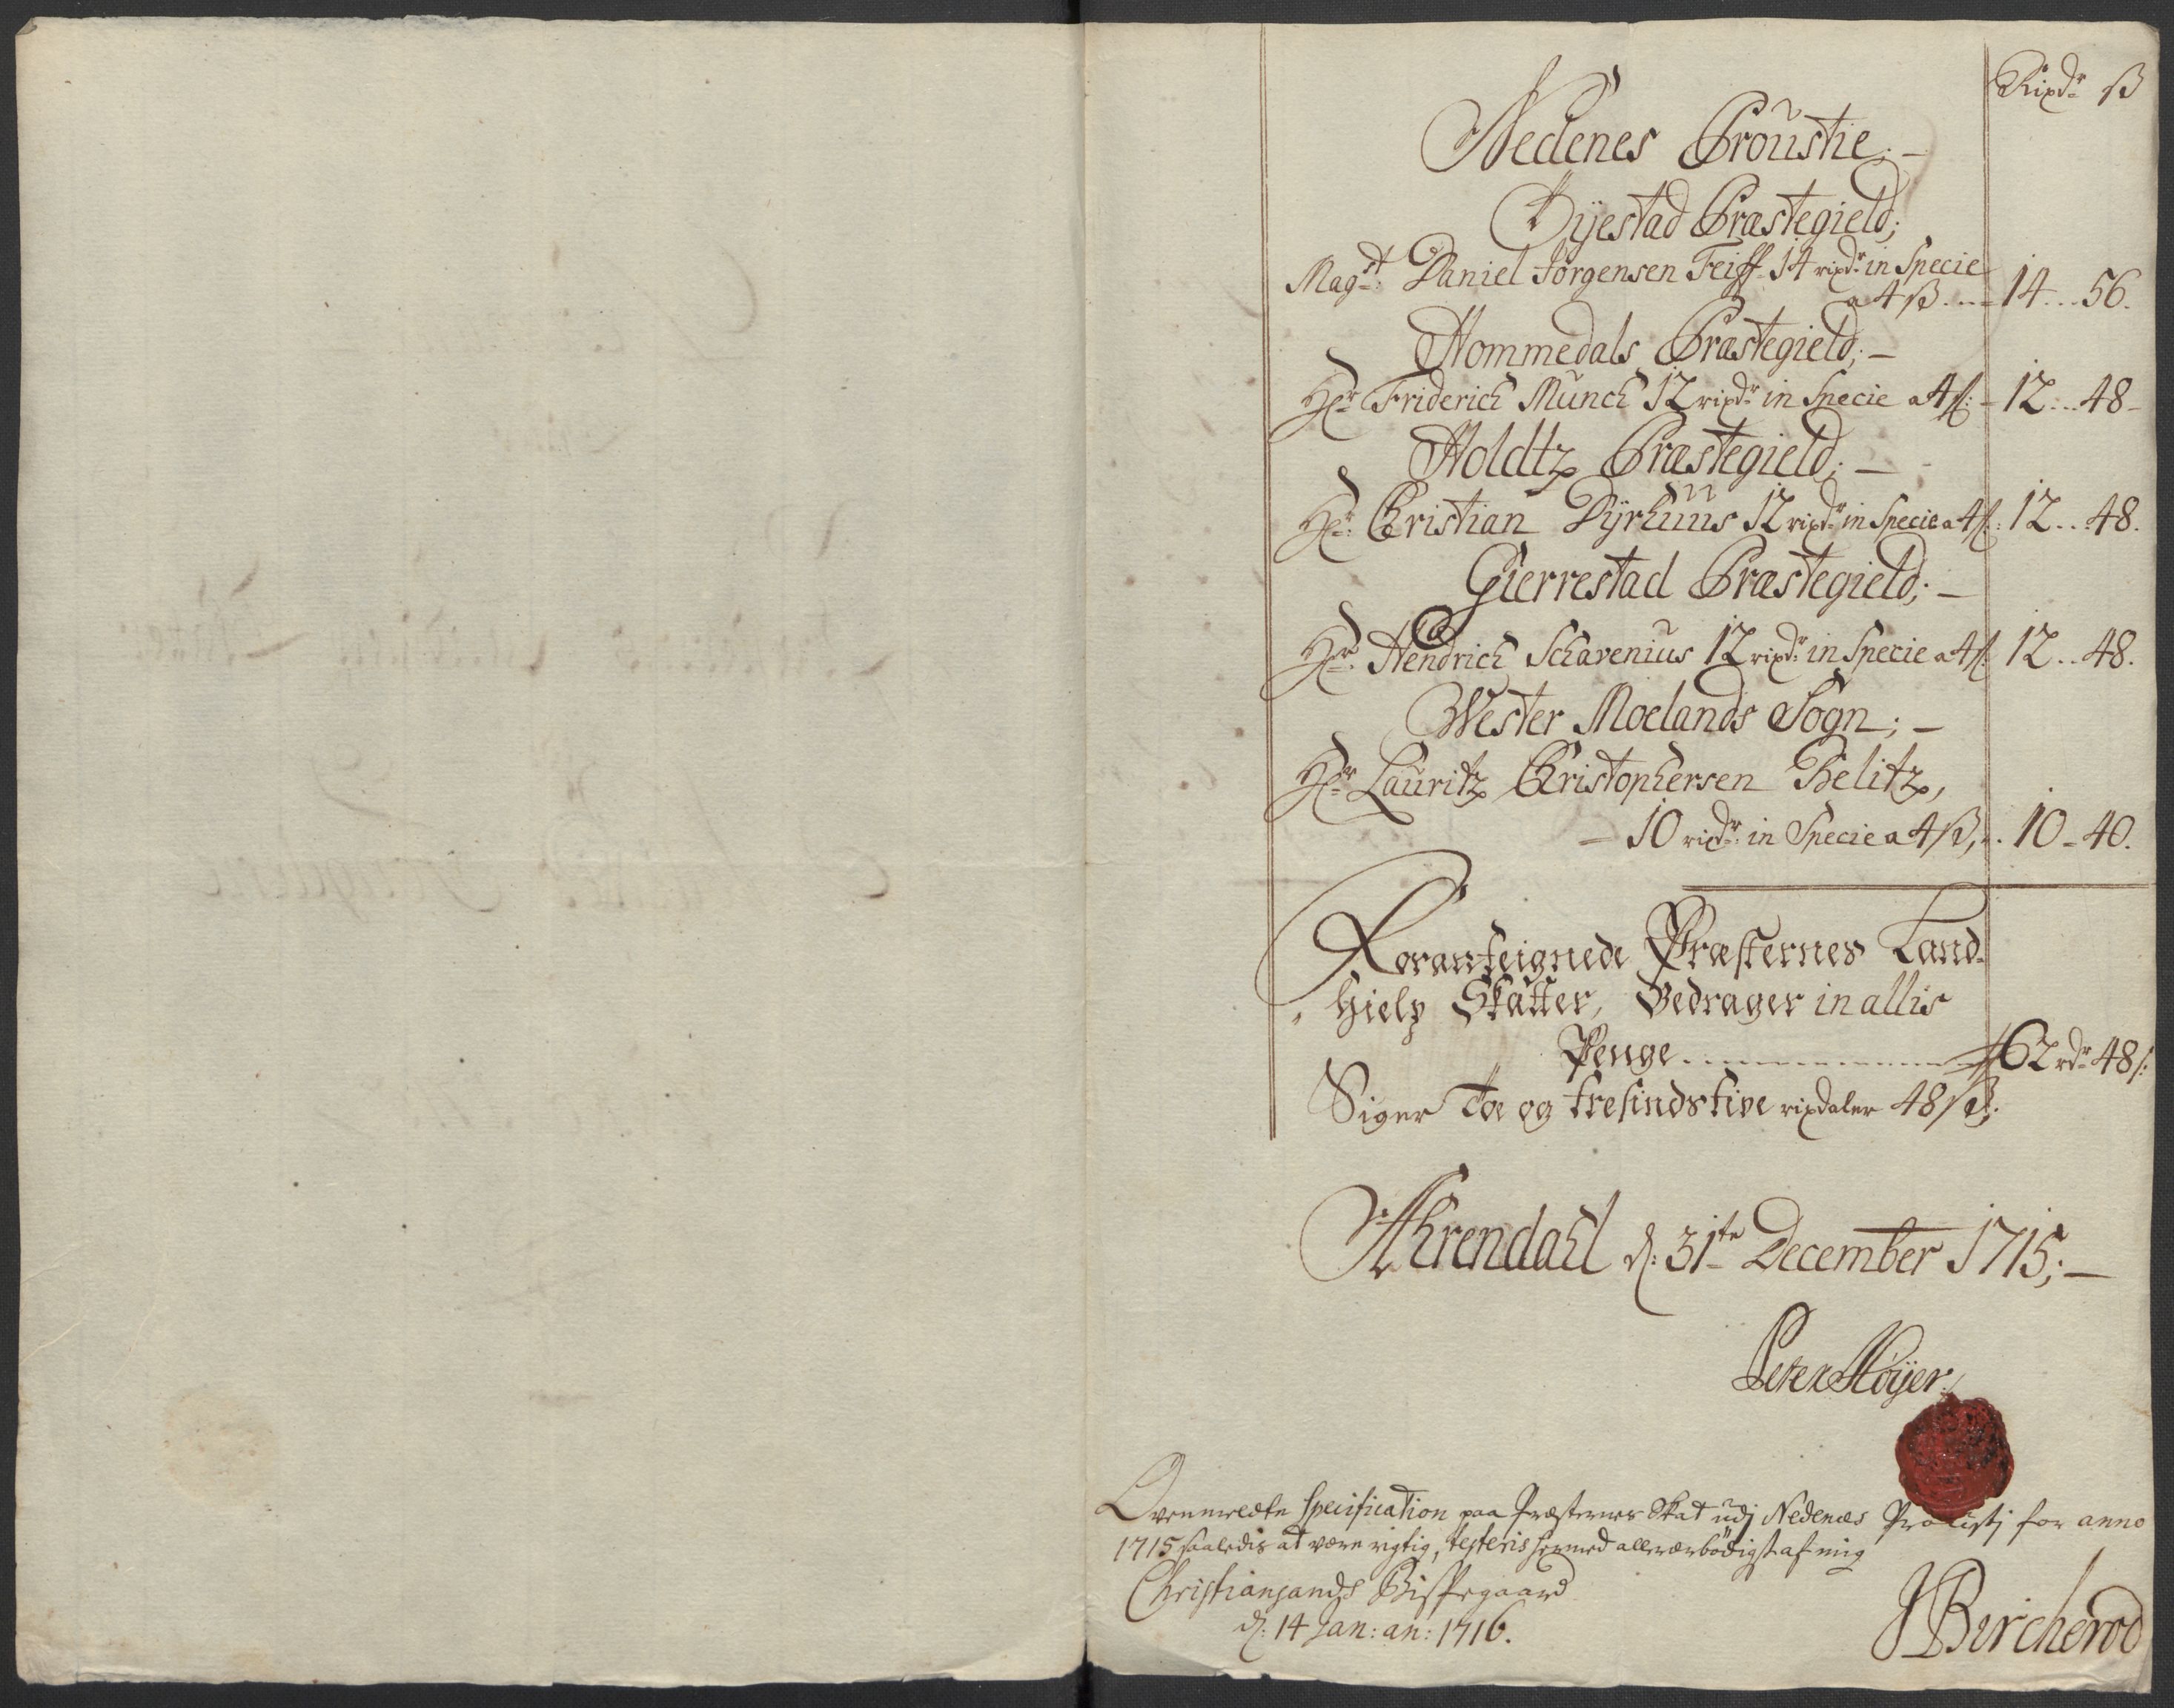 Rixdr ß
Nedenes Proustie; —
Øyestad Præstegield;
Magst: Daniel Jørgensen Feiff 14 rixdr: in Specie
a 4 ß .... 14 ... 56.
Hommedals Præstegield; —
Hr: Friderich Munch 12 rixdr: in Specie a 4 ß: - 12 ... 48 -
Holdtz Præstegield; —
Hr: Christian Dyrhuus 12 rixdr: in Specie a 4 ß: 12 ... 48.
Gierrestad Præstegield; —
Hr: Hendrich Schavenius 12 rixdr: in Specie a 4 ß: 12 .. 48.
Wester Moelands Sogn; —
Hr: Lauritz Christophersen Belitz,
— 10 rixdr: in Specie a 4 ß, .. 10 - 40.
Foranteignede Præsternes Land-
hielp Skatter, Bedrager in allis
Penge .......... 62 rdr 48 ß:
Siger Toe og tresindstive rixdaler 48 ß.
Ahrendahl d: 31te December 1715; —
Peter Høyer.
Ovenmeldte specification paa Præsternes Skat udj Nedenæs Provstj for anno
1715 saaledis at være rigtig, testeris hermed allerærbødigst af mig
Christiansands Bispegaard
d: 14 Jan: an: 1716.
JBircherod